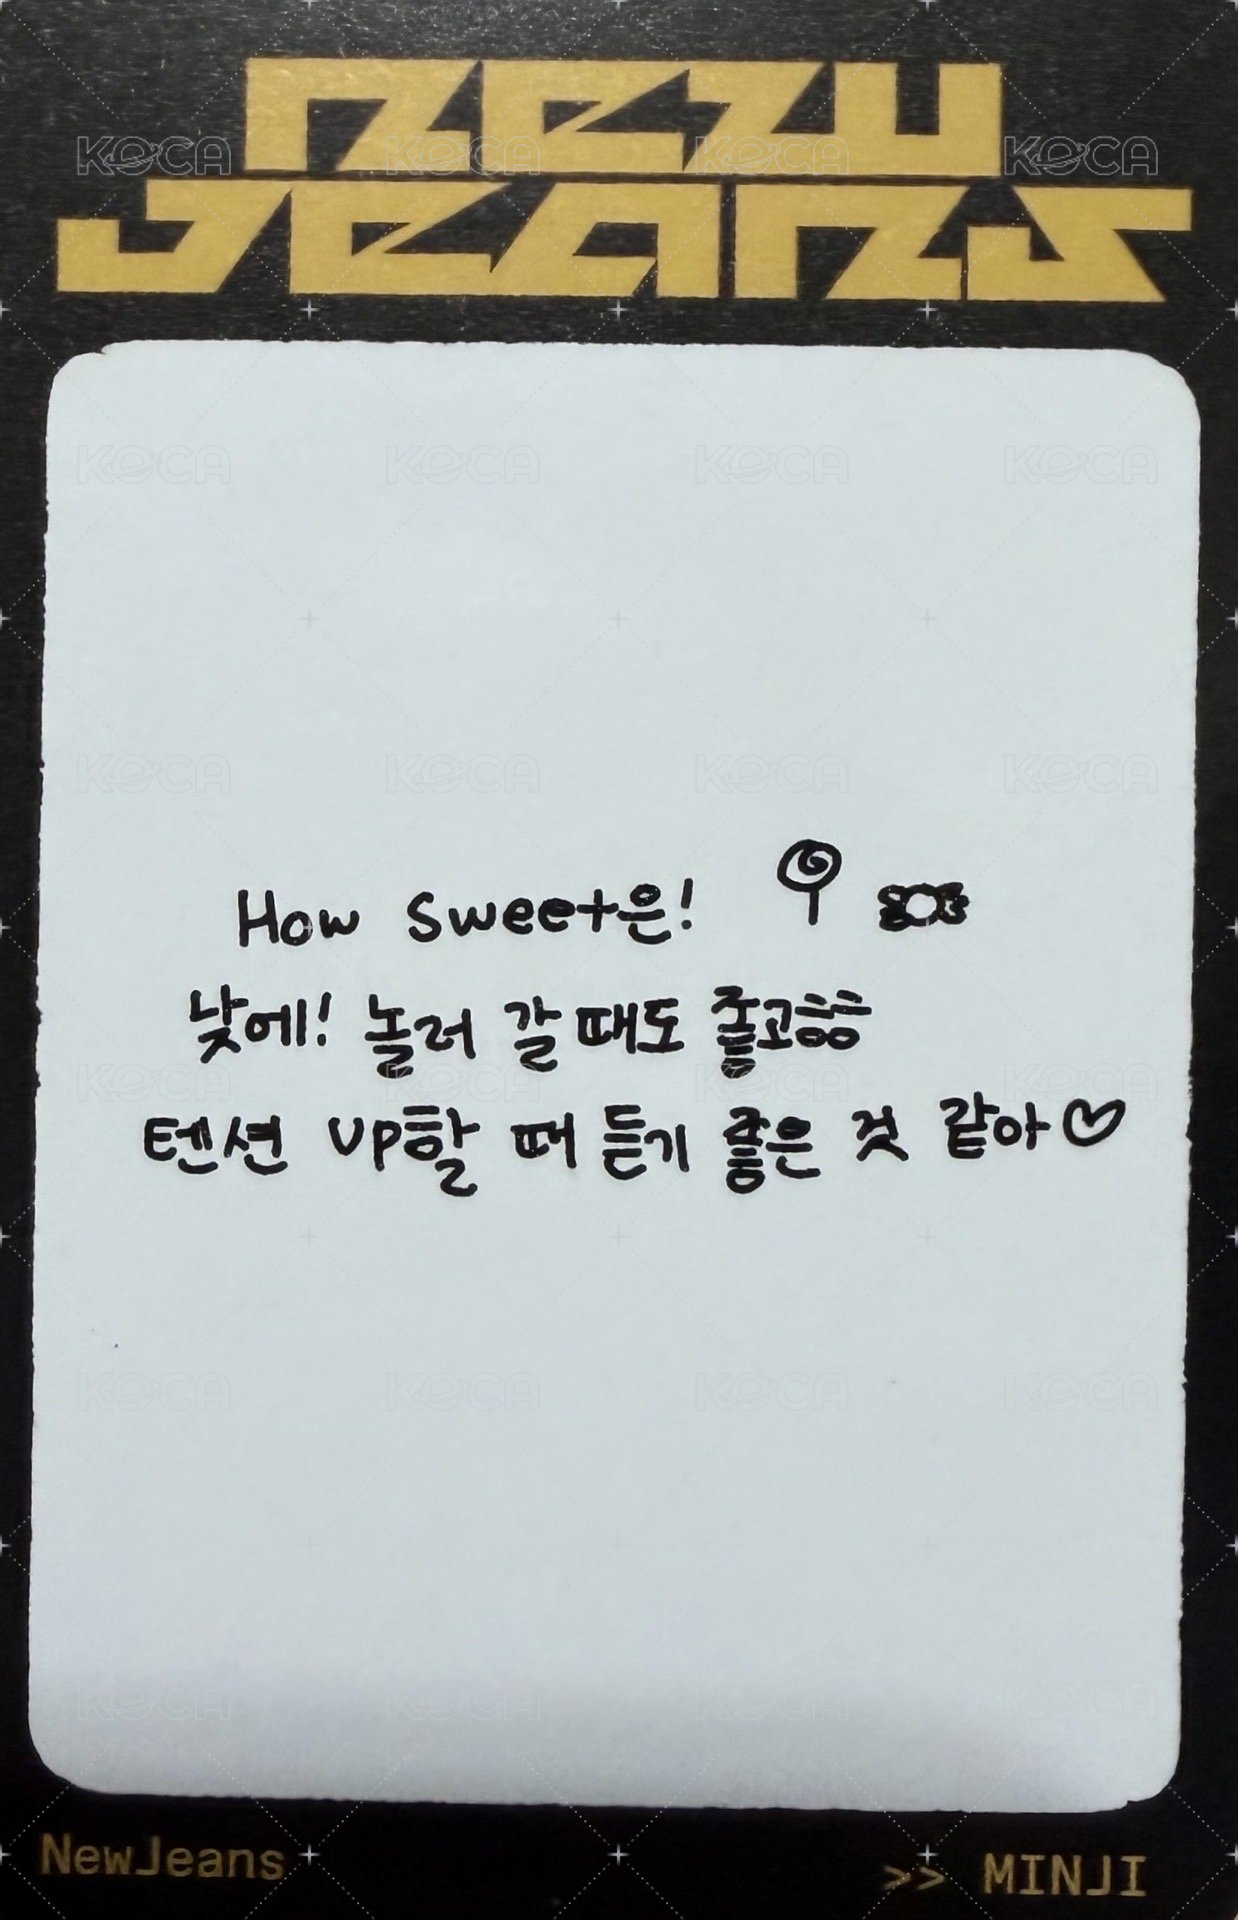 NEW
JEANS
How sweet은!
낮에! 놀러 갈 때도 좋고ㅎㅎ
텐션 UP할 때 듣기 좋은 것 같아♡
NewJeans
>> MINJI
KOCA